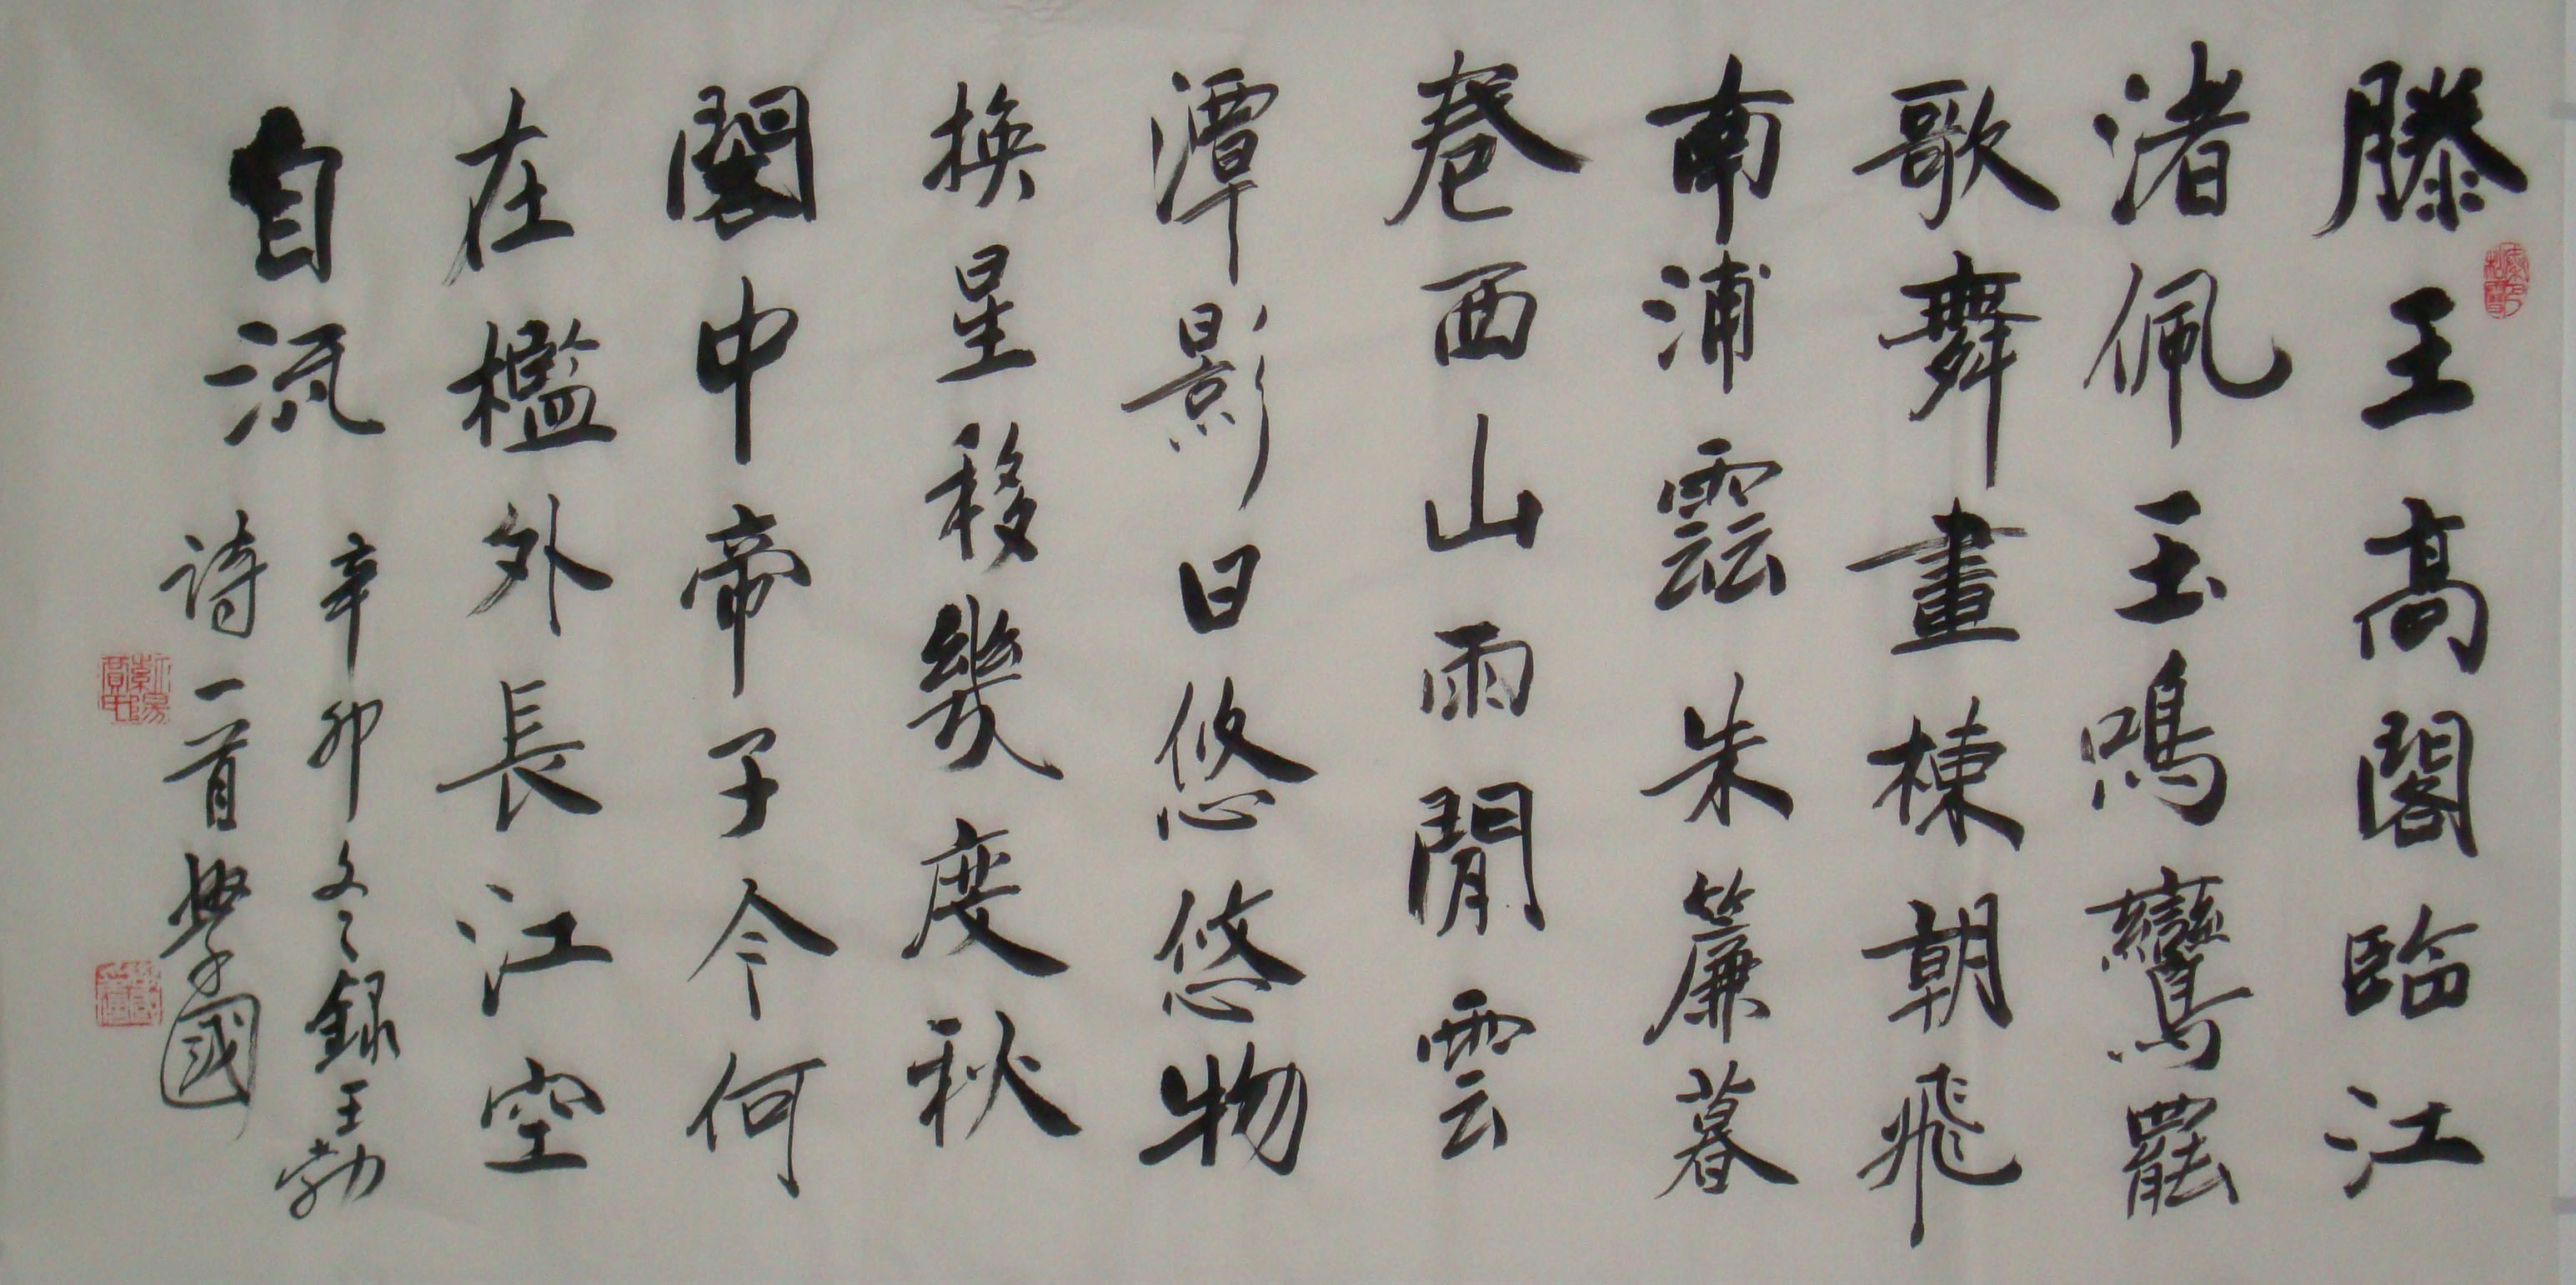 滕王高閣臨江
渚佩玉鳴鸞罷
歌舞畫棟朝飛
南浦雲朱簾暮
卷西山雨閒雲
潭影日悠悠物
换星移幾度秋
閣中帝子今何
在檻外長江空
自流
辛卯冬録王勃
詩一首學國